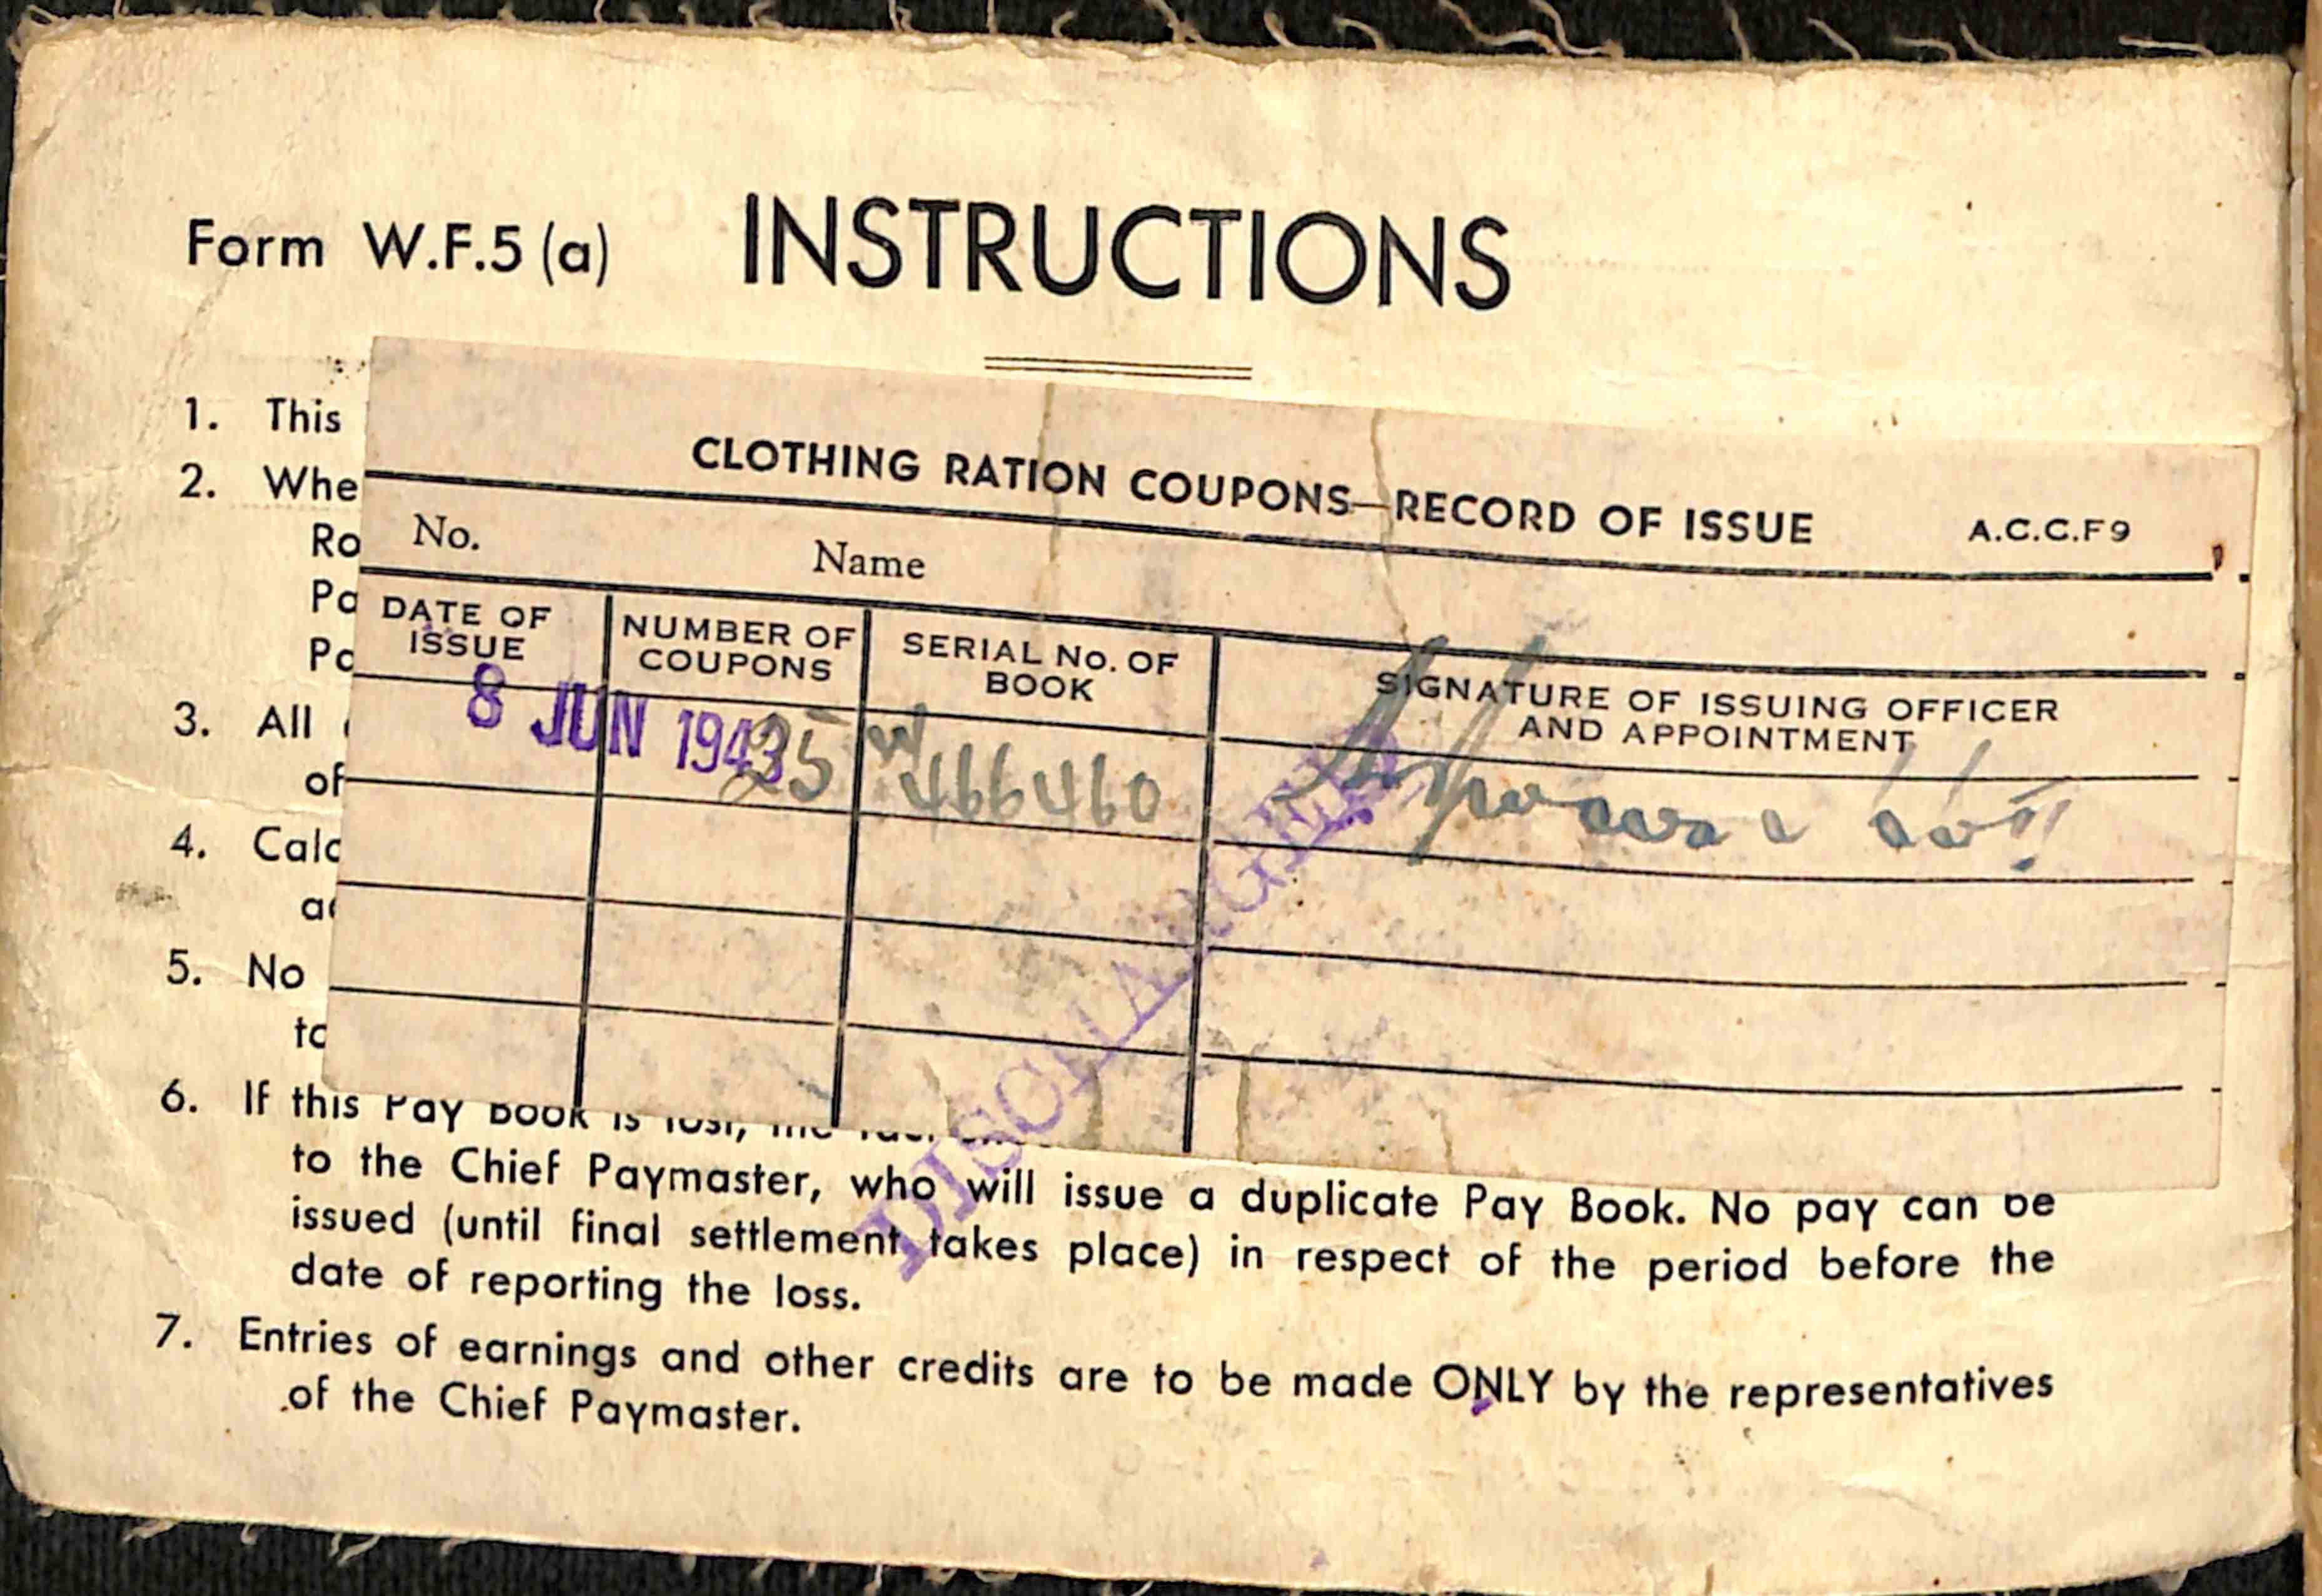 Form W.F.5 (a) INSTRUCTIONS
1. This
2. Whe
Ro
Pa
Pa
3. All
of
4. Calc
a
5. No
to
CLOTHING RATION COUPONS—RECORD OF ISSUE A.C.C.F 9
No. Name
DATE OF ISSUE NUMBER OF COUPONS SERIAL No. OF BOOK SIGNATURE OF ISSUING OFFICER AND APPOINTMENT
8 JUN 1943 35 W 466460
DISCHARGED
6. If this Pay Book is lost, the
to the Chief Paymaster, who will issue a duplicate Pay Book. No pay can be
issued (until final settlement takes place) in respect of the period before the
date of reporting the loss.
7. Entries of earnings and other credits are to be made ONLY by the representatives
of the Chief Paymaster.